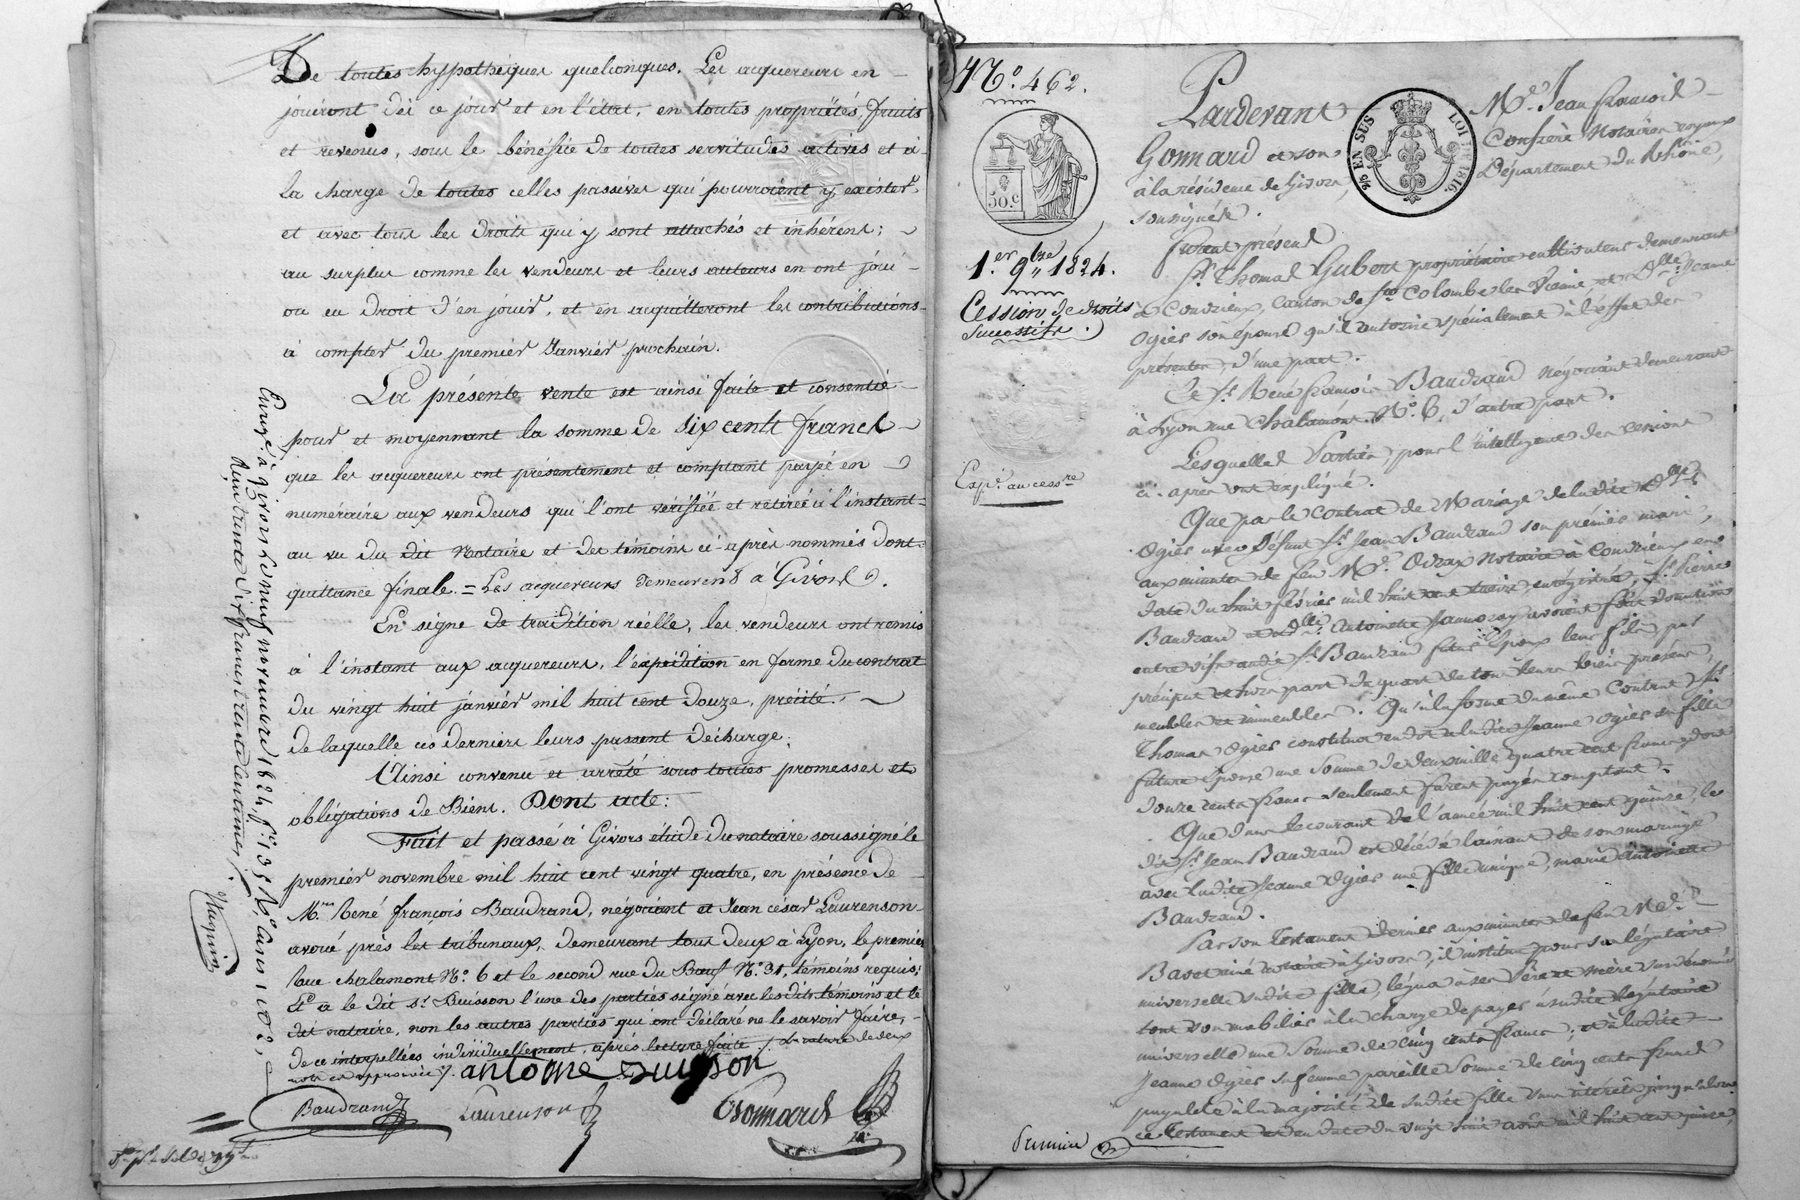 De toutes hypothèques quelconques. Les acquereurs en
jouiront dès ce jour et en l'état, en toutes propriétés, fruits
et revenus, sous le bénéfice de toutes servitudes actives et à
la charge de toutes celles passives qui pourroient y exister
et avec tous les droits qui y sont attachés et inhérens;
au surplus comme les vendeurs et leurs auteurs en ont joui
ou eu droit d'en jouir, et en acquitteront les contributions
à compter du premier Janvier prochain.
La présente vente est ainsi faite et consentie
pour et moyennant la somme de six cents francs
que les acquereurs ont présentement et comptant payée en
numéraire aux vendeurs qui l'ont vérifiée et retirée à l'instant
au vu du dit Notaire et des témoins ci-après nommés dont
quittance finale. = Les acquereurs demeurens à Givors.
En signe de tradition réelle, les vendeurs ont remis
à l'instant aux acquereurs, l'expédition en forme du contrat
du vingt huit janvier mil huit cent douze, précité.
de laquelle ces derniers leurs passent décharge.
Ainsi convenu et arrêté sous toutes promesses et
obligations de Biens. Dont acte:
Fait et passé à Givors étude du notaire soussigné le
premier novembre mil huit cent vingt quatre, en présence de
Mrs René françois Baudrand, négociant et Jean césar Laurenson
avoué près les tribunaux, demeurant tous deux à Lyon, le premier
Rue chalamont No. 6 et le second rue du Bœuf No. 31, témoins requis;
Et a le dit sr. Buisson l'une des parties signé avec les dits témoins et le
dit notaire, non les autres parties qui ont déclaré ne le savoir faire,
de ce interpellées individuellement, après lecture faite ./. la rature de deux
mots est approuvée ./.
antoine buisson
Baudrand
Laurenson
Gonnard
Enregé. à givors le neuf novembre 1824, fo. 135 Ro. cases 1 et 2,
Reçu trente dix francs trente centimes ./.
No. 462.
50.c
1.er 9bre 1824.
Cession de droits
successifs.
Expo. au cessre
Pardevant Me. Jean françois
Gonnard et son Confrère Notaires royaux
à la résidence de Givors, Département du Rhône,
soussignés.
EN SUS LOI DE 1816.
furent présens
Sr. Thomas Gubert propriétaire cultivateur demeurant
à Condrieux, canton de Ste Colombe les Vienne, et Dlle. Jeanne
Ogier son épouse qu'il autorise spécialement à l'effet des
présentes, d'une part.
Et Sr. René françois Baudrand négociant demeurant
à Lyon rue Chalamont No. 6, d'autre part.
Lesquelles Parties, pour l'intelligence des cessions
ci-après ont expliqué.
Que par le Contrat de Mariage de la dite Dlle.
Ogier avec défunt Sr. Jean Baudrand son premier mari,
aux minutes de feu Me. Odrax Notaire à Condrieux en
date du huit février mil huit cent treize, enrégistré, Sr. Pierre
Baudrand et Dlle. Antoinette avoient fait donation
entre vifs audit Sr. Baudrand futur Epoux leur fils par
préciput et hors part du quart de tous leurs biens présens,
meubles et immeubles. Qu'à la forme du même Contrat Sr.
Thomas Ogier constitua en dot à ladite Jeanne Ogier sa fille
future Epouse une somme de deux mille quatre cent francs, dont
douze cents francs seulement furent payés comptant.
Que dans le courant de l'année mil huit cent quinze, le
dit Sr. Jean Baudrand est décédé laissant de son mariage
avec ladite Jeanne Ogier une fille unique, marie antoinette
Baudrand.
Par son Testament dernier aux minutes de feu Me.
Basset ainé notaire à Givors, il institua pour sa légataire
universelle sadite fille, légua à ses Père et mère susdénommés
tout son mobilier à la charge de payer à sadite légataire
universelle une somme de cinq cents francs; et à ladite
Jeanne Ogier sa femme pareille somme de cinq cents francs
payable à la majorité de sadite fille sans intérêts jusqu'alors
ce Testament est en date du vingt huit août mil huit cent quinze,
Première